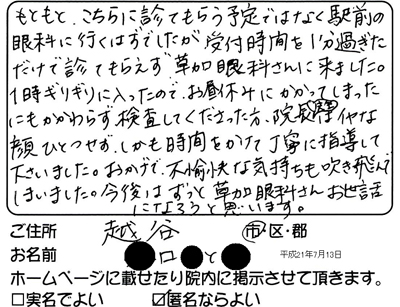 もともと、こちらに診てもらう予定ではなく駅前の
眼科に行くはずでしたが、受付時間を1分過ぎた
だけで診てもらえず、草加眼科さんに来ました。
1時ギリギリに入ったので、お昼休みにかかってしまった
にもかかわらず検査してくださった方、院長 イヤな
顔ひとつせず、しかも時間をかけて丁寧に指導して
下さいました。おかげで、不愉快な気持ちも吹き飛んで
しまいました。今後はずっと草加眼科さんお世話
になろうと思います。
ご住所 越谷 市・区・郡
お名前 ●口●と● 平成21年7月13日
ホームページに載せたり院内に掲示させて頂きます。
□実名でよい ☑匿名ならよい